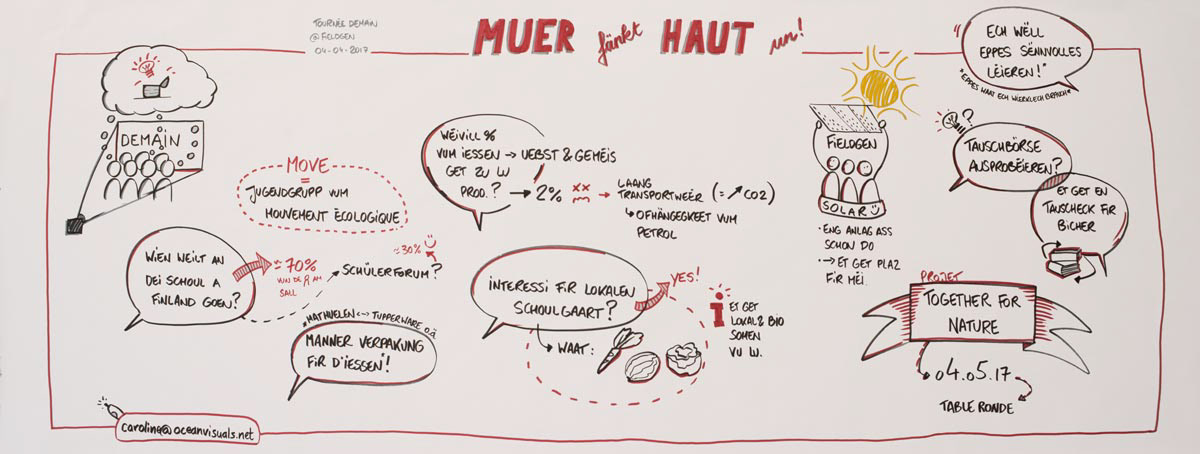 TOURNÉE DEMAIN
@ FIELDGEN
04-04-2017
MUER fänkt HAUT un!
DEMAIN
MOVE
=
JUGENDGRUPP VUM
MOUVEMENT ÉCOLOGIQUE
WIEN WEILT AN
DEI SCHOUL A
FINLAND GOEN?
≈70%
SALL
SCHÜLERFORUM?
≈30%
*MATHUELEN <--> TUPPERWARE O.Ä
MANNER VERPAKUNG
FIR D'IESSEN*!
WÉIVILL %
VUM IESSEN → UEBST & GEMÉIS
GET ZU LU
PROD.? → 2% → LAANG
TRANSPORTWEER (= ↗ CO2)
↳ OFHÄNGEGKEET VUM
PETROL
INTERESSI FIR LOKALEN
SCHOULGAART?
YES!
WAAT:
i
ET GET
LOKAL & BIO
SOMEN
VU LU.
FIELDGEN
SOLAR
• ENG ANLAG ASS
SCHON DO
• → ET GET PLAZ
FIR MÉI
"ECH WËLL
EPPES SËNNVOLLES
LÉIEREN!"
*EPPES WAAT ECH WIERKLECH BRAUCH*
?
TAUSCHBÖRSE
AUSPROBÉIEREN?
ET GET EN
TAUSCHECK FIR
BICHER
PROJET
TOGETHER FOR
NATURE
04.05.17
TABLE RONDE
caroline@oceanvisuals.net